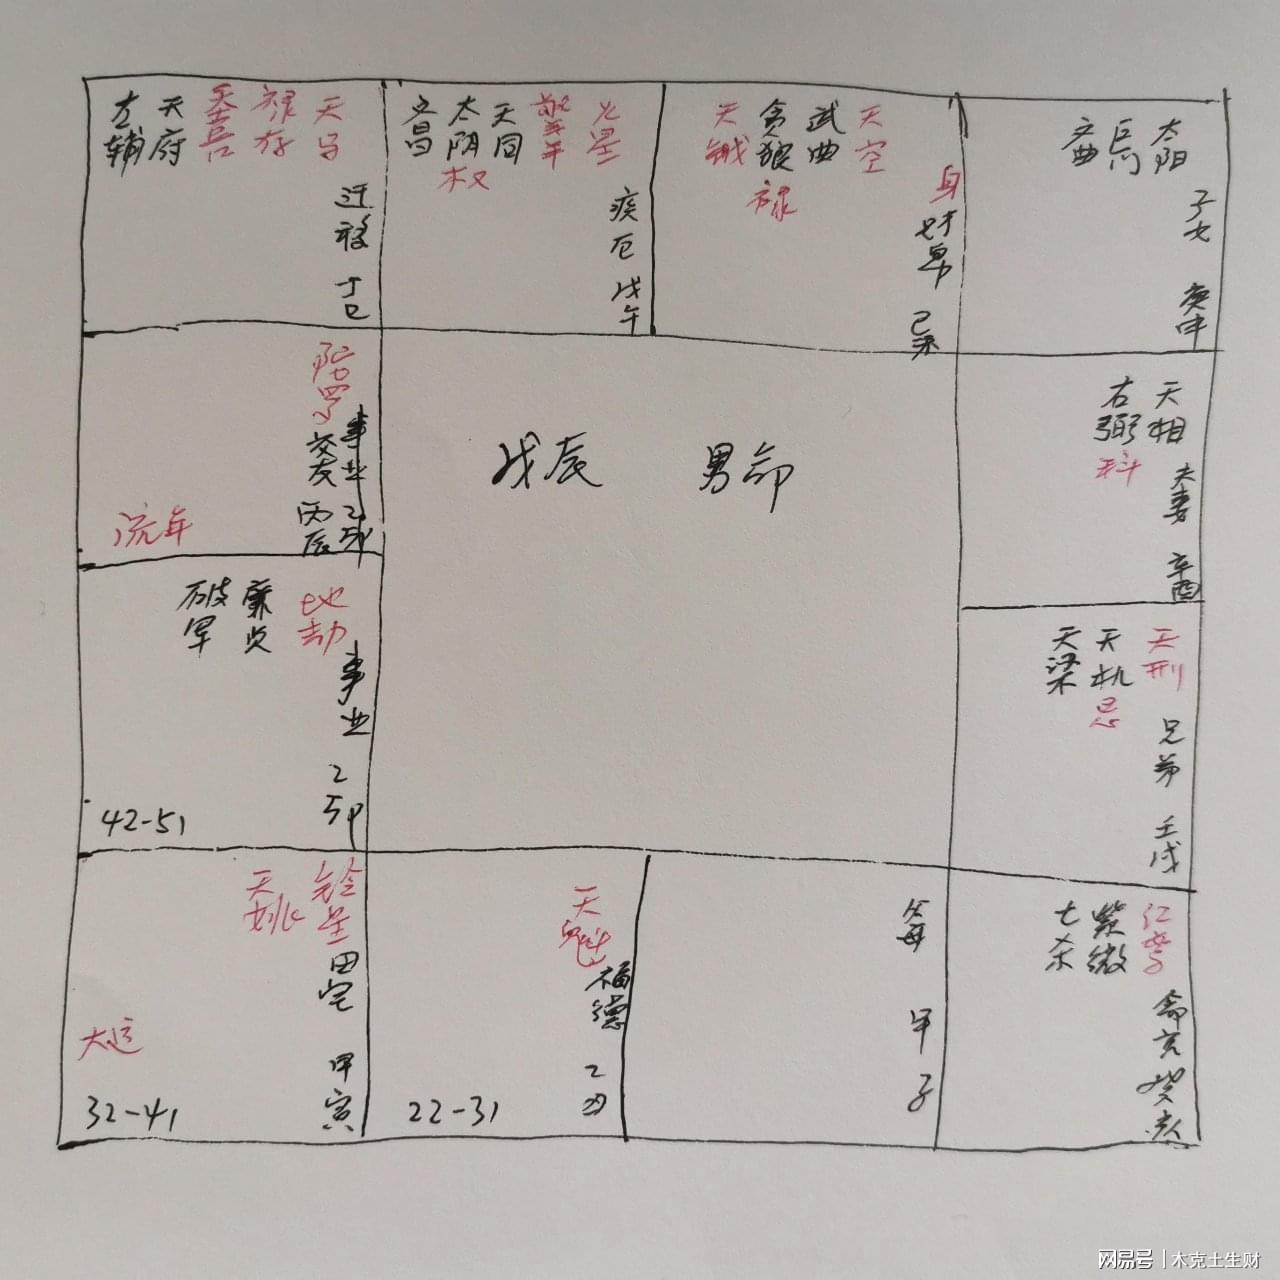 左辅 天府 天喜 禄存 天马
迁移
丁巳
文昌 太阴 天同 擎羊 火星
权
疾厄
戊午
天钺 贪狼 武曲 天空
禄
身
财帛
己未
文曲 巨门 太阳
子女
庚申
陀罗
事业 乙卯
交友 丙辰
流年
戊辰 男命
右弼 天相
科
夫妻
辛酉
破军 廉贞 地劫
事业
乙卯
42-51
天梁 天机 天刑
忌
兄弟
壬戌
天姚 铃星
田宅
大运
甲寅
32-41
天魁
福德
乙丑
22-31
父母
甲子
七杀 紫微 红鸾
命宫
癸亥
网易号 | 木克土生财